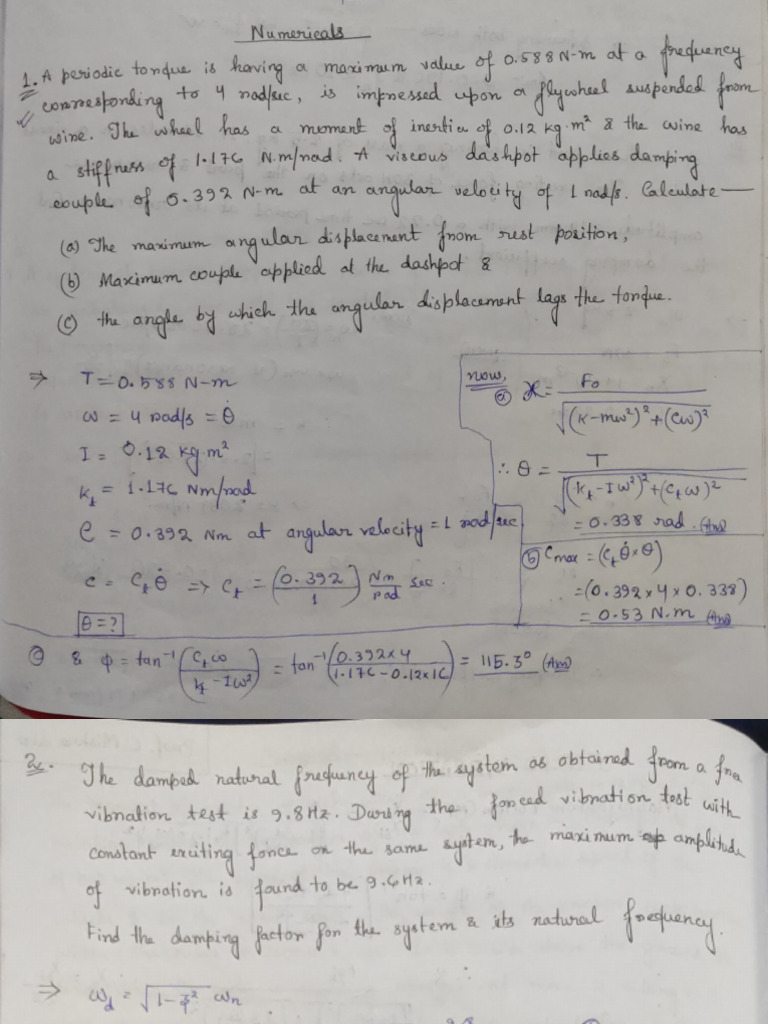 Numericals
1. A periodic torque is having a maximum value of 0.588 N-m at a frequency
corresponding to 4 rad/sec, is impressed upon a flywheel suspended from
wire. The wheel has a moment of inertia of 0.12 kg.m² & the wire has
a stiffness of 1.176 N.m/rad. A viscous dashpot applies damping
couple of 0.392 N-m at an angular velocity of 1 rad/s. Calculate —
(a) The maximum angular displacement from rest position,
(b) Maximum couple applied at the dashpot &
(c) the angle by which the angular displacement lags the torque.
⇒ T = 0.588 N-m
ω = 4 rad/s = θ̇
I = 0.12 kg.m²
k_t = 1.176 Nm/rad
C = 0.392 Nm at angular velocity = 1 rad/sec
c = C_t θ̇ ⇒ C_t = (0.392/1) Nm/rad sec.
θ = ?
now,
(a) X = F₀/√((K-mω²)²+(Cω)²)
∴ θ = T/√((k_t-Iω²)²+(C_tω)²)
= 0.338 rad. (Ans)
(b) C_max = (C_t θ̇ × θ)
= (0.392×4×0.338)
= 0.53 N.m (Ans)
(c) & φ = tan⁻¹(C_tω/(k_t-Iω²)) = tan⁻¹(0.392×4/(1.176-0.12×16)) = 115.3° (Ans)
2. The damped natural frequency of the system as obtained from a free
vibration test is 9.8Hz. During the forced vibration test with
constant exciting force on the same system, the maximum amplitude
of vibration is found to be 9.6Hz.
Find the damping factor for the system & its natural frequency.
⇒ ω_d = √(1-ξ²) ω_n